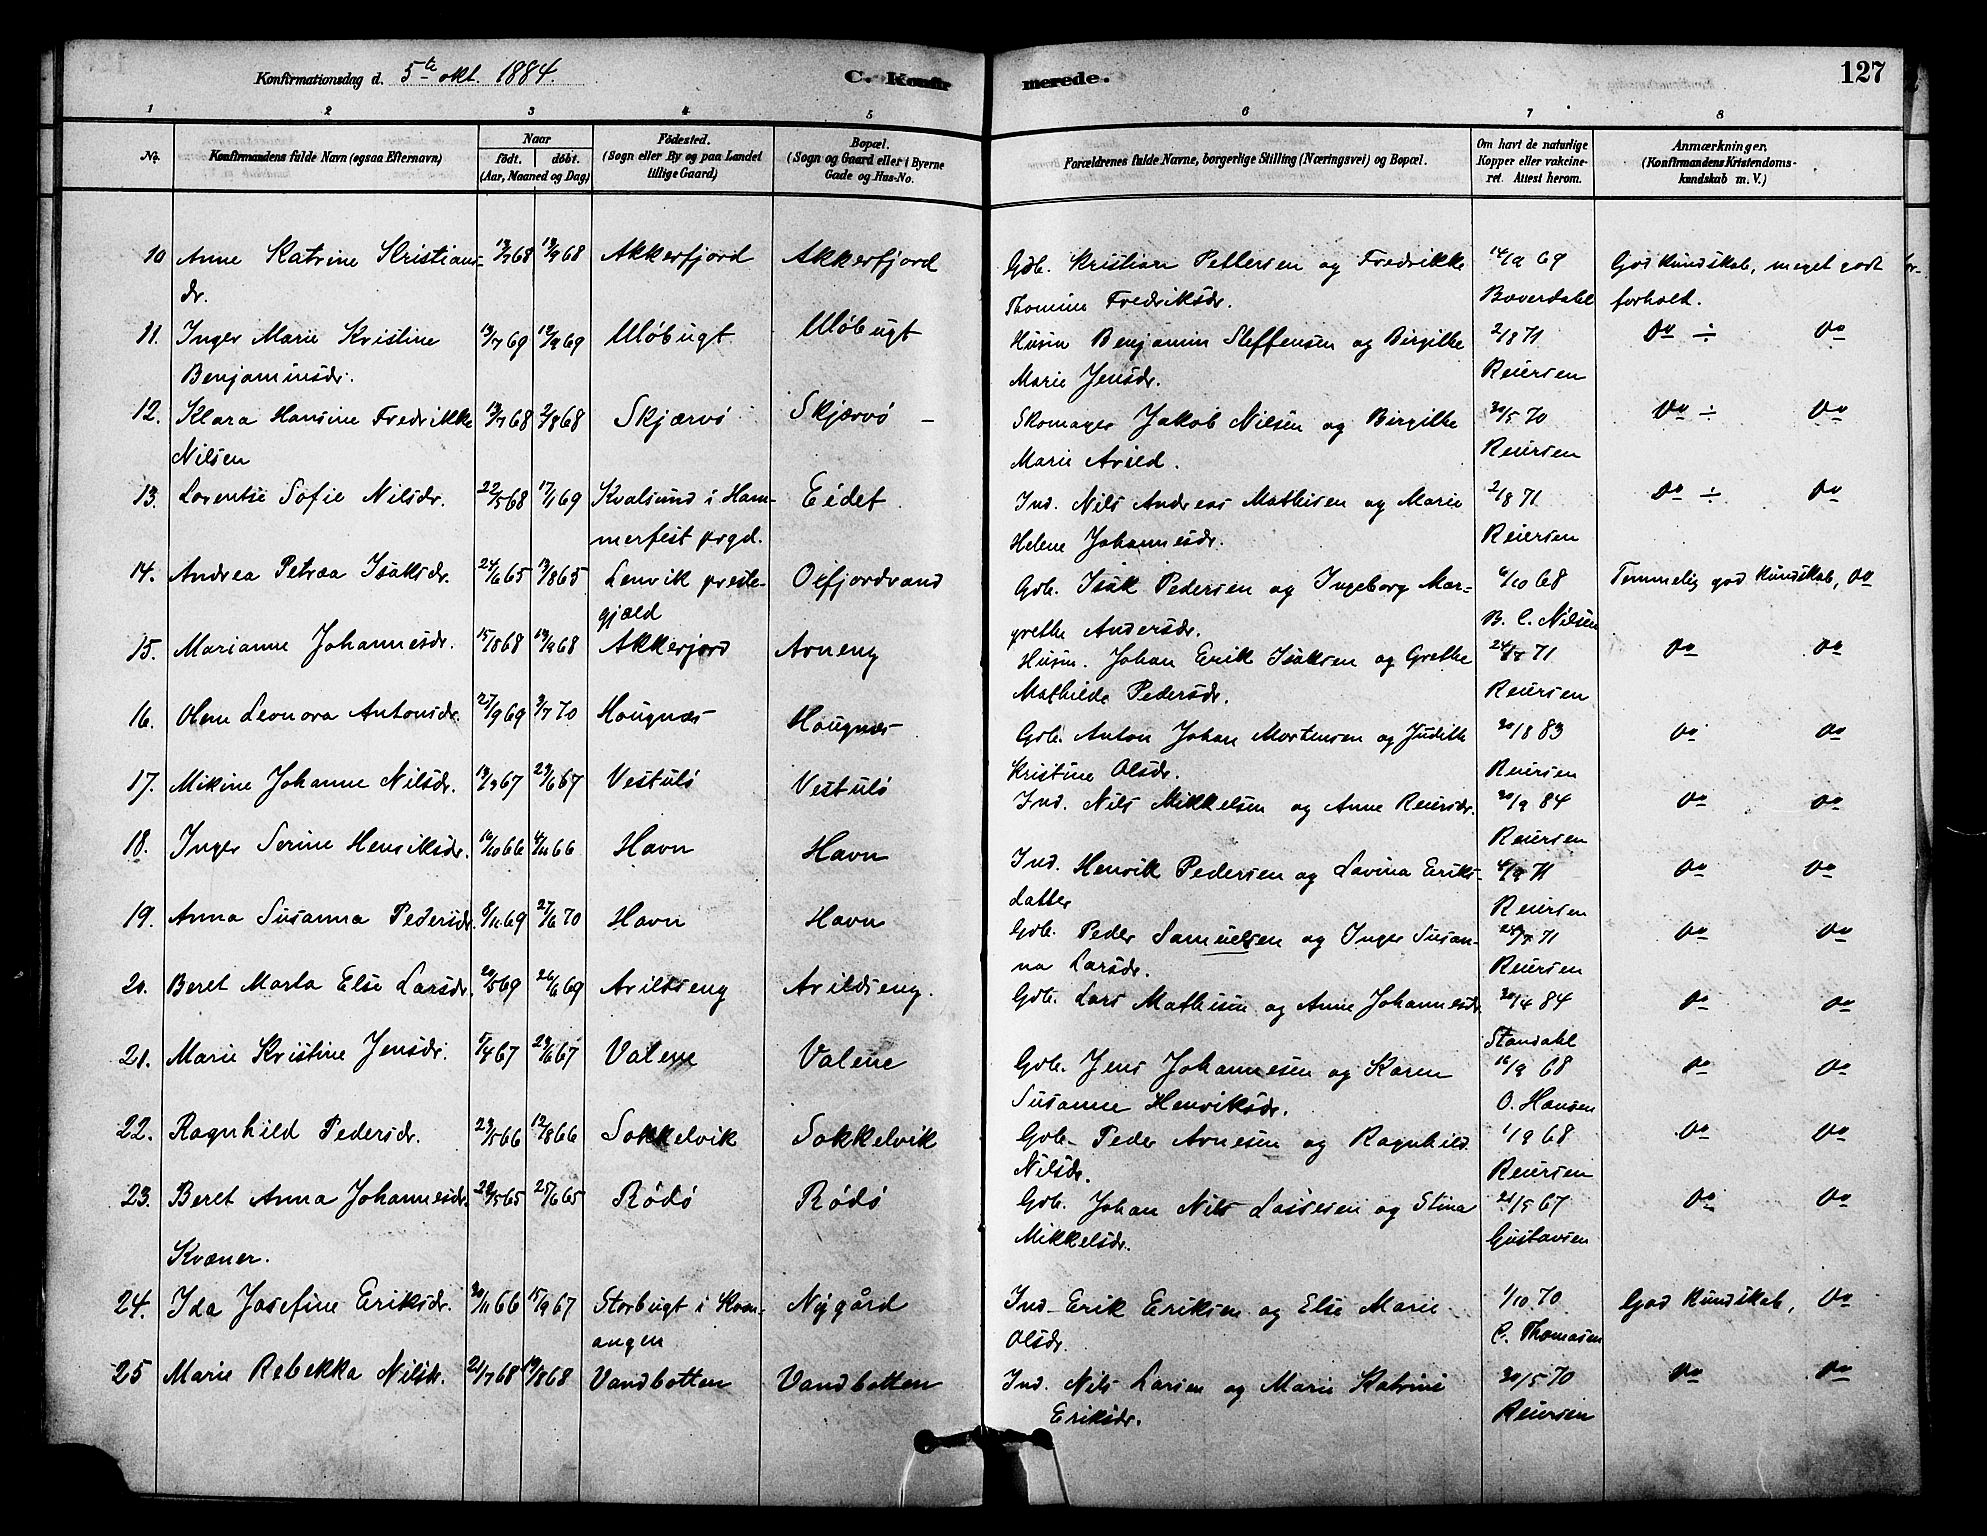 Konfirmationsdag d. 5te okt. 1884.
C. Konfirmerede.
127
1 2 3 4 5 6 7 8
No. Konfirmandens fulde Navn (ogsaa Efternavn) Naar født. døbt. (Aar, Maaned og Dag) Fødested. (Sogn eller By og paa Landet tillige Gaard) Bopæl. (Sogn og Gaard eller i Byerne Gade og Hus-No. Forældrenes fulde Navne, borgerlige Stilling (Næringsvei) og Bopæl. Om havt de naturlige Kopper eller vakcineret. Attest herom. Anmærkninger. (Konfirmandens Kristendomskundskab m. V.)
10 Anne Katrine Kristians- 13/7 68 13/9 68 Akkerfjord Akkerfjord Gdb. Kristian Pettersen og Fredrikke 14/9 69 God kundskab, meget godt for-
dr. Thomine Fredriksdr. Baverdahl forholt.
11. Inger Marie Kristine 13/7 69 12/9 69 Uløbugt Uløbugt Husm Benjamin Steffensen og Birgitte 2/8 71 Do ÷ Do
Benjaminsdr. Marie Jensdr. Reiersen
12. Klara Hansine Fredrikke 13/7 68 2/8 68 Skjærvø Skjærvø – Skomager Jakob Nilsen og Birgitte 30/5 70 Do ÷ Do
Nilsen Marie Arild. Reiersen
13. Lorentse Sofie Nilsdr. 22/5 68 17/1 69 Kvalsund i Ham- Eidet Ind. Nils Andreas Mathisen og Marie 2/8 71 Do ÷ Do
merfest prgd. Helene Johannesdr. Reiersen
14. Andrea Petrea Isaksdr. 24/6 65 13/8 65 Lenvik preste- Oxfjordvand Gdb. Isak Pedersen og Ingeborg Mar- 6/10 68 Temmelig god kundskab, Do
gjæld grethe Andersdr. B. C. Nilsen
15. Marianne Johannesdr. 15/8 68 13/9 68 Akkerjord Arneng Husm. Johan Erik Isaksen og Grethe 71 Do Do
Mathilde Pedersdr. Reiersen
16. Leonora Antonsdr. 27/9 69 3/7 70 Hougnæs Hougnæs Gdb. Anton Johan Mortensen og Judith 30/8 83 Do Do
Kristine Olsdr. Reiersen
17. Mikine Johanne Nilsdr. 13/3 67 23/6 67 Vestulø Vestulø Ind. Nils Mikkelsen og Anne Reiersdr. 30/9 84 Do Do
Reiersen
18. Inger Serine Henriksdr. 16/10 66 4/11 66 Havn Havn Ind. Henrik Pedersen og Lavina Eriks- 71 Do Do
datter Reiersen
19. Anna Susanna Pedersdr. 8/11 69 27/6 70 Havn Havn Gdb. Peder Samuelsen og Inger Susan- 71 Do Do
na Larsdr. Reiersen
20. Beret Marta Else Larsdr. 20/5 69 26/6 69 Arildseng Arildseng. Gdb. Lars Mathisen og Anne Johannesdr. 30/4 84 Do Do
Standahl
21. Marie Kristine Jensdr. 7/4 67 23/6 67 Valene Valene Gdb. Jens Johannesen og Karen 16/9 68 Do Do
Susanne Henriksdr. O. Hansen
22. Ragnhild Pedersdr. 23/5 66 12/8 66 Sokkelvik Sokkelvik Gdb. Peder Arnesen og Ragnhild 1/9 68 Do Do
Nilsdr. Reiersen
23. Beret Anna Johannesdr. 28/5 65 25/6 65 Rødø Rødø Gdb. Johan Nils Lassesen og Stina 21/5 67 Do Do
Mikkelsdr. Gustavsen
Kvæner.
24. Ida Josefine Eriksdr. 30/11 66 15/9 67 Storbugt i Kvæn- Nygård Ind. Erik Eriksen og Else Marie 1/10 70 God kundskab, Do
angen Olsdr. C. Thomasen
25 Marie Rebekka Nilsdr. 21/7 68 19/8 68 Vandbotten Vandbotten Ind. Nils Larsen og Marie Katrine 30/5 70 Do Do
Eriksdr. Reiersen